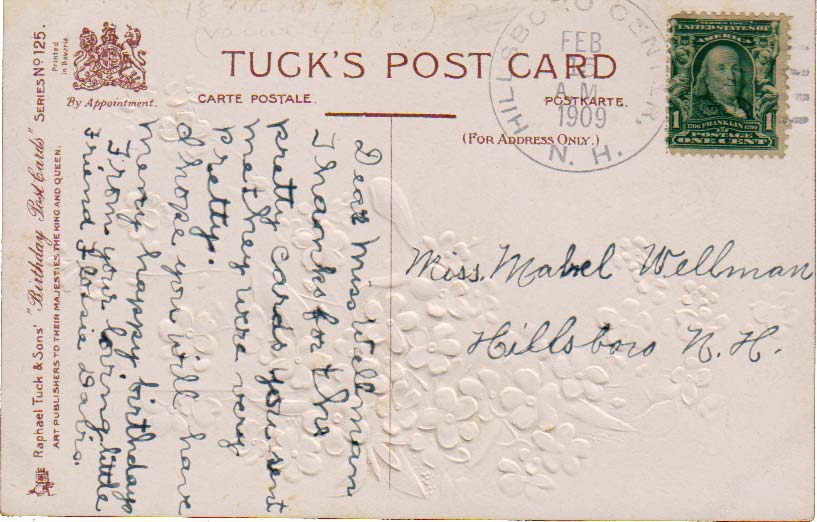 TUCK'S POST CARD
CARTE POSTALE.
POSTKARTE.
(FOR ADDRESS ONLY.)
By Appointment.
Printed
in Bavaria.
Raphael Tuck & Sons' "Birthday Post Cards" SERIES No 125.
ART PUBLISHERS TO THEIR MAJESTIES THE KING AND QUEEN.
HILLSBORO CENTER,
FEB
A.M.
1909
N. H.
UNITED STATES OF
AMERICA
1 FRANKLIN 1
POSTAGE
ONE CENT
Dear Miss Wellman
Thanks for the
pretty cards you sent
me they were very
pretty.
I hope you will have
many happy birthdays
From your loving little
Friend
Miss. Mabel Wellman
Hillsboro N. H.